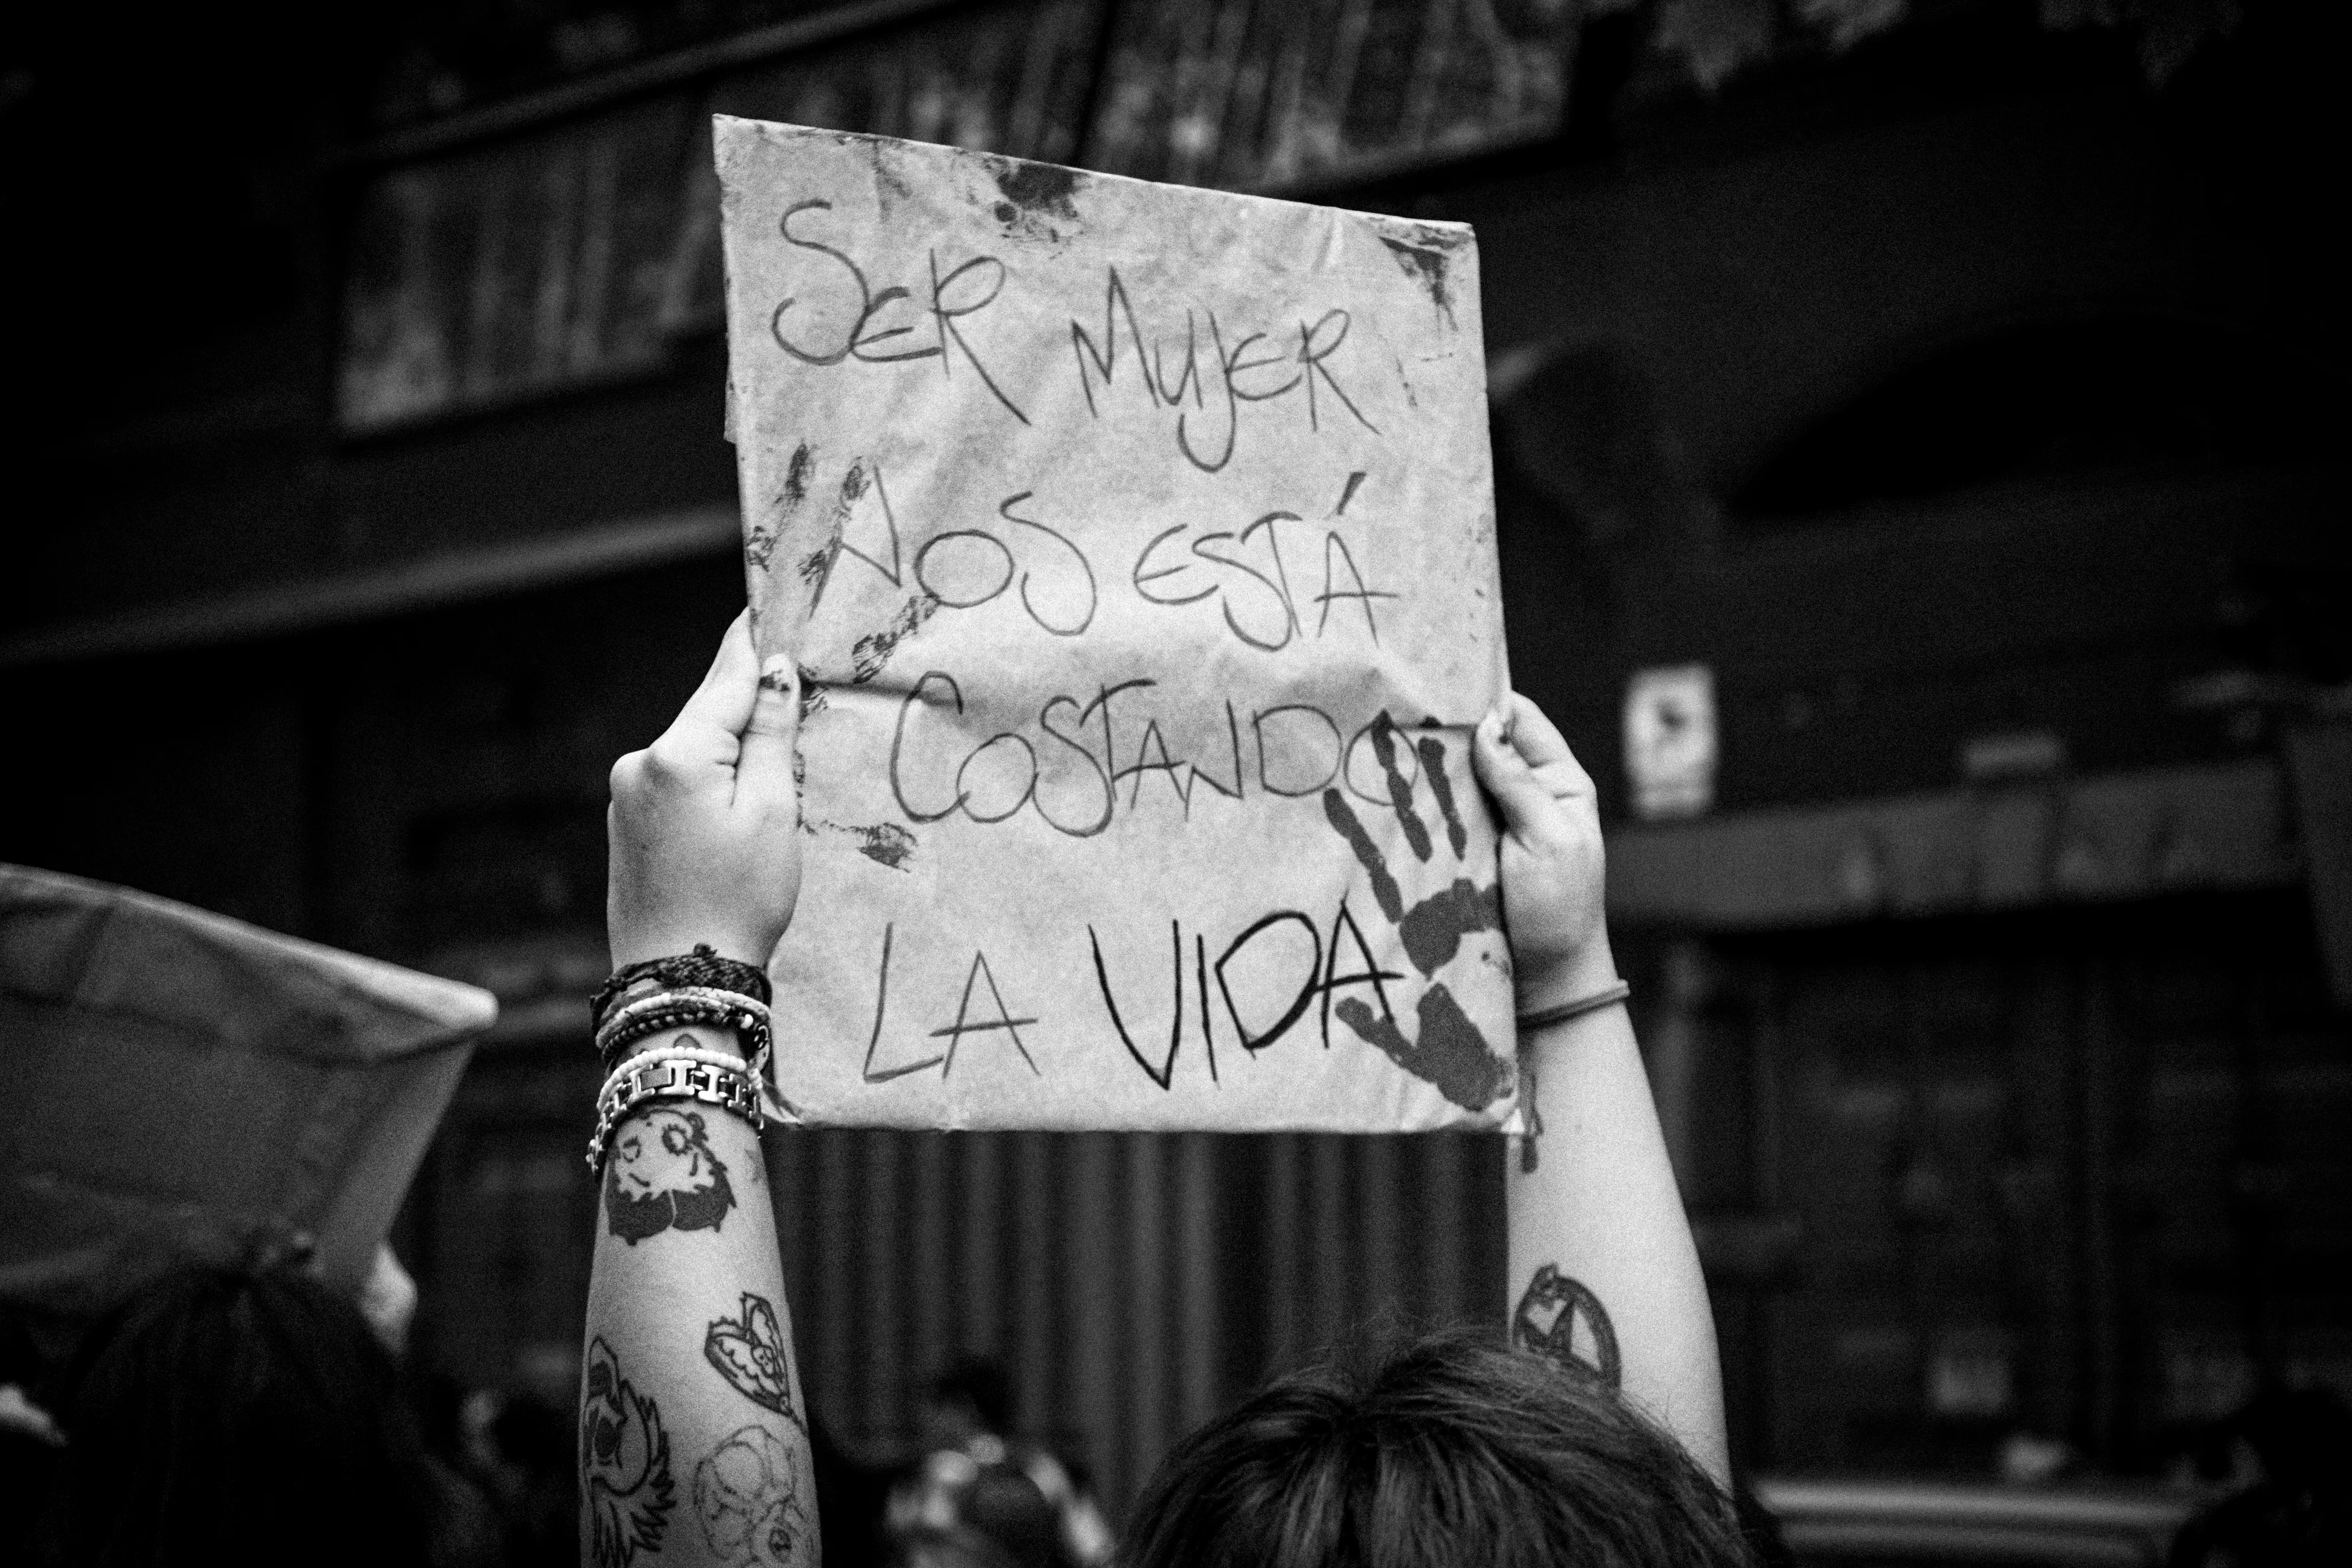 SER MUJER
NOS ESTÁ
COSTANDO
LA VIDA